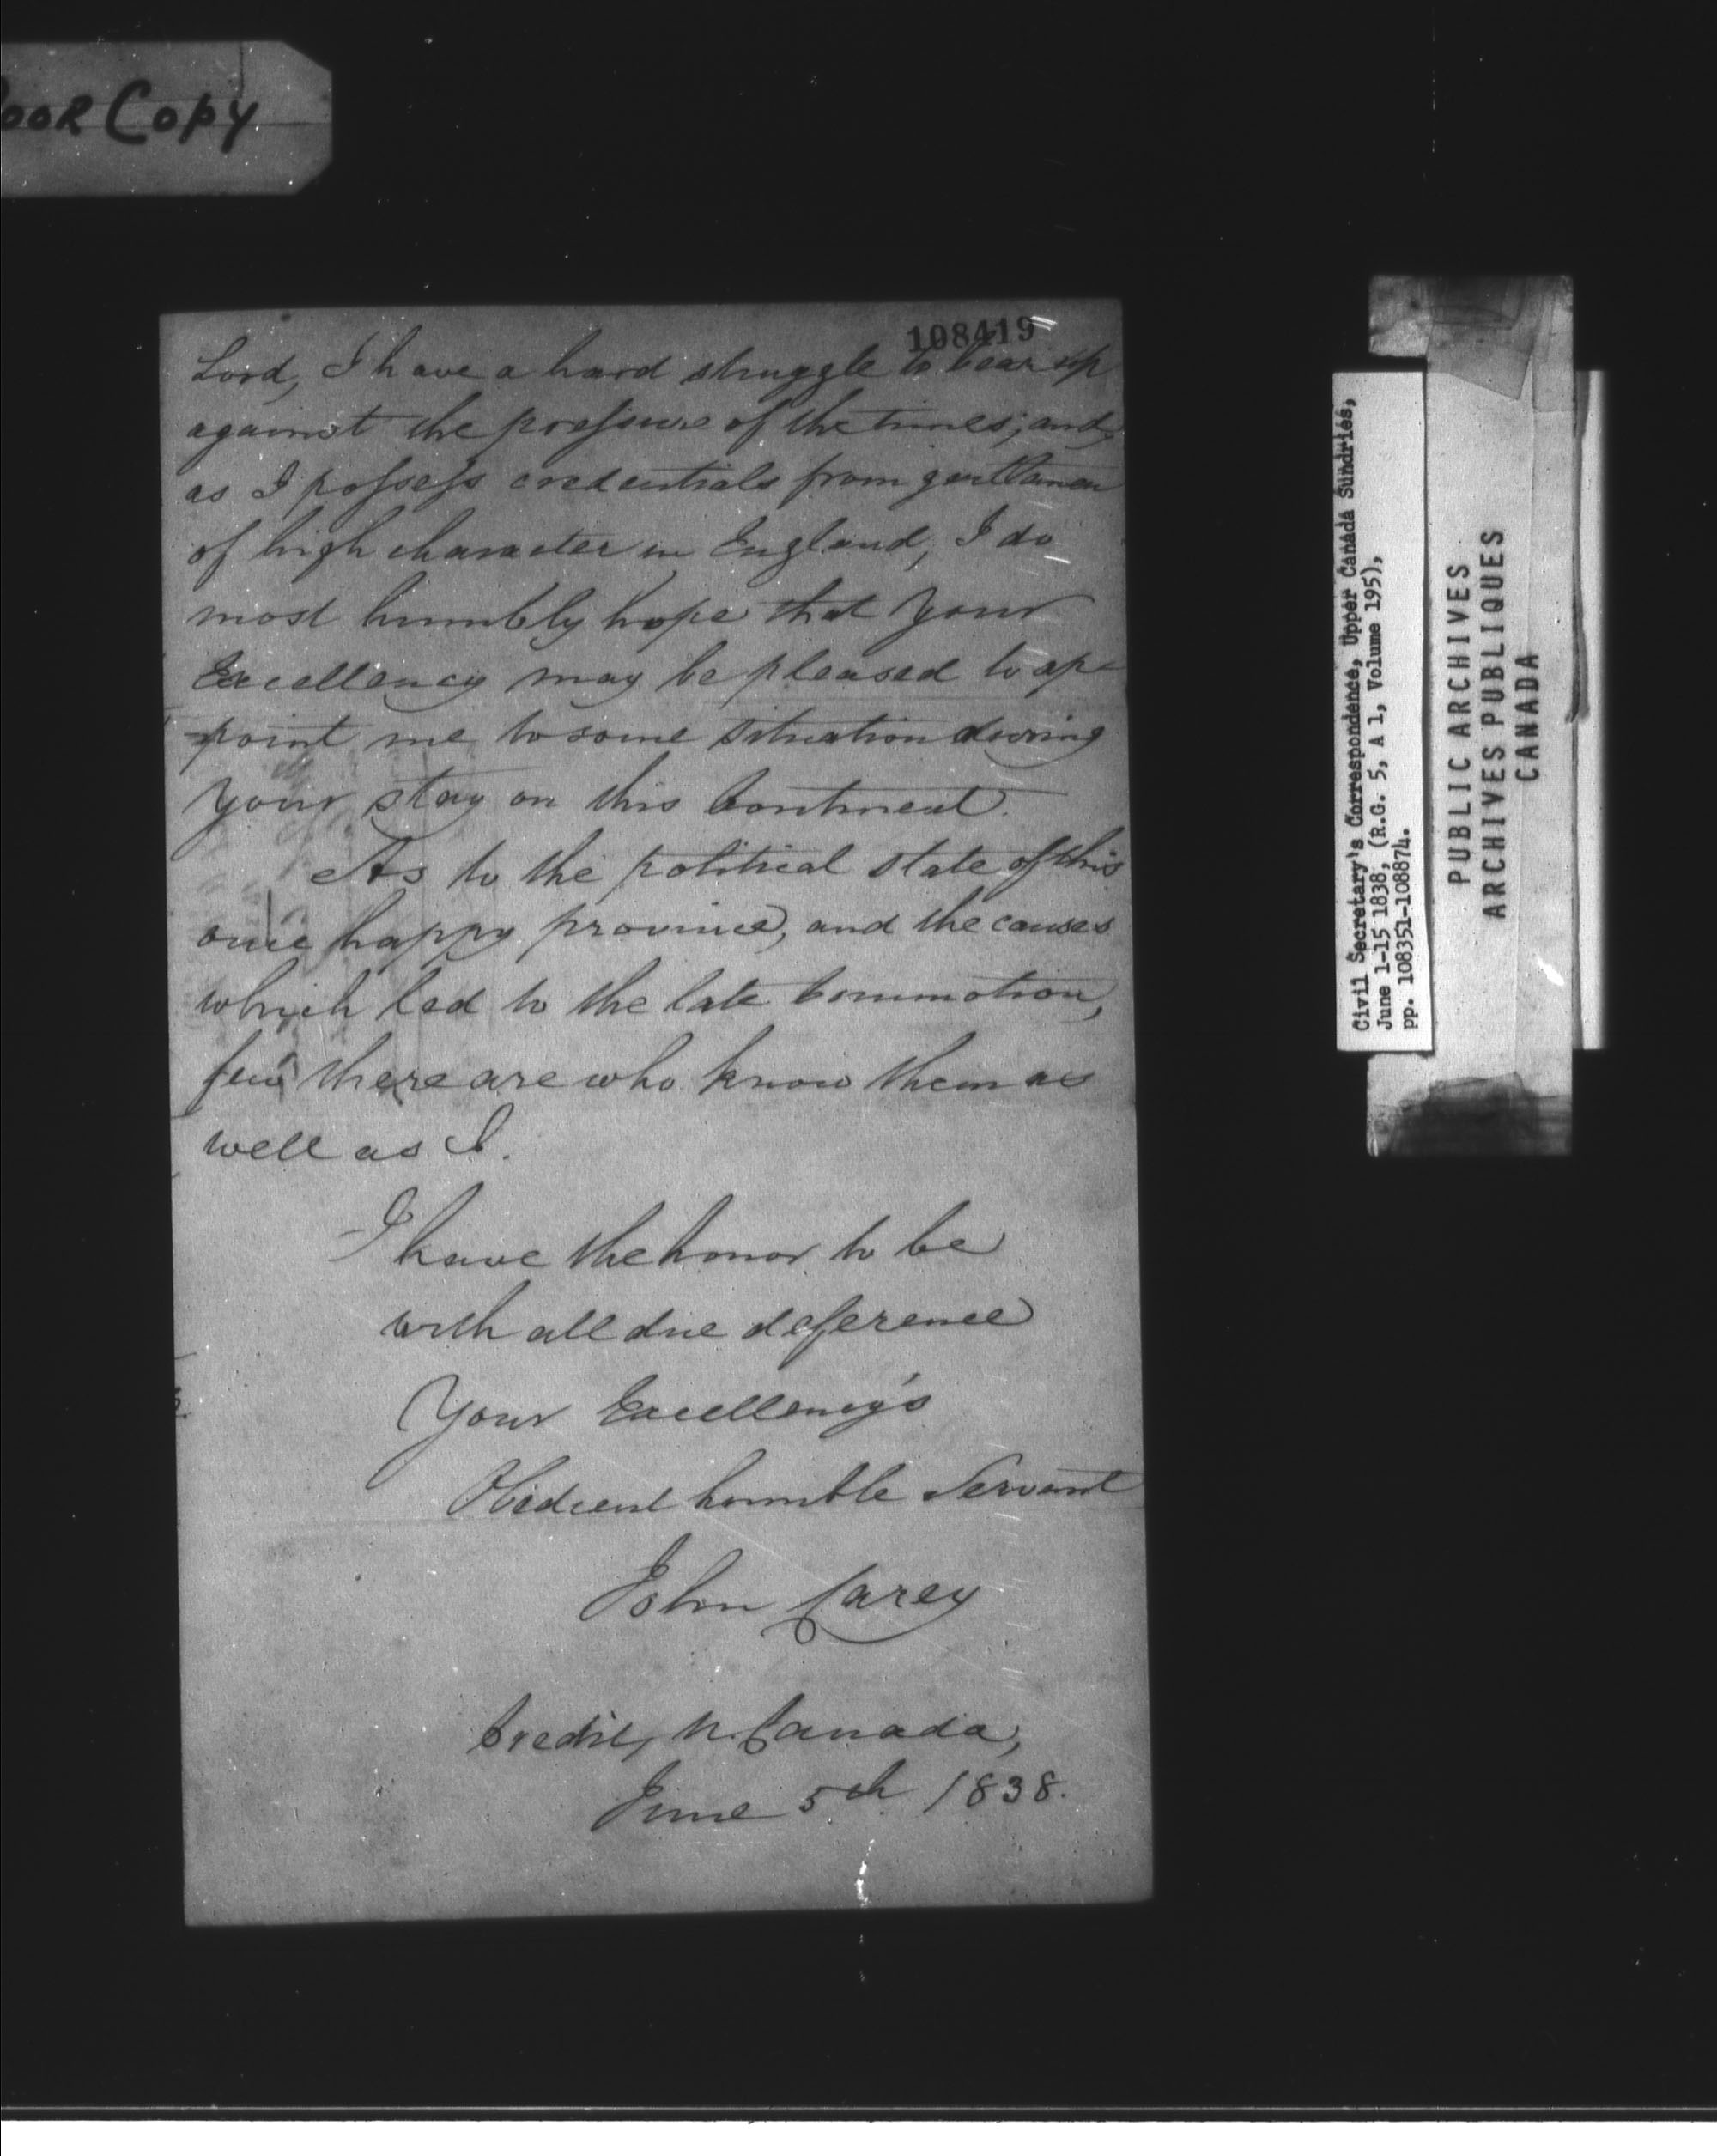 OOR COPY
108419
Lord, I have a hard struggle to bear up
against the pressure of the times; and,
as I possess credentials from gentlemen
of high character in England, I do
most humbly hope that Your
Excellency may be pleased to ap-
=point me to some situation during
Your stay on this Continent.
As to the political state of this
once happy province, and the causes
which led to the late Commotion,
few there are who know them as
well as I.
I have the honor to be
with all due deference
Your Excellency's
Obedient humble Servant
John Carey
Credit, U. Canada,
June 5th 1838.
Civil Secretary's Correspondence, Upper Canada Sundries,
June 1-15 1838, (R.G. 5, A 1, Volume 195),
pp. 108351-108874.
PUBLIC ARCHIVES
ARCHIVES PUBLIQUES
CANADA